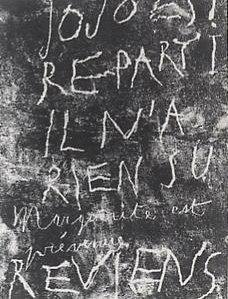 JOJO EST
REPARTI
IL N'A
RIEN SU
Marguerite est
prévenue
REVIENS